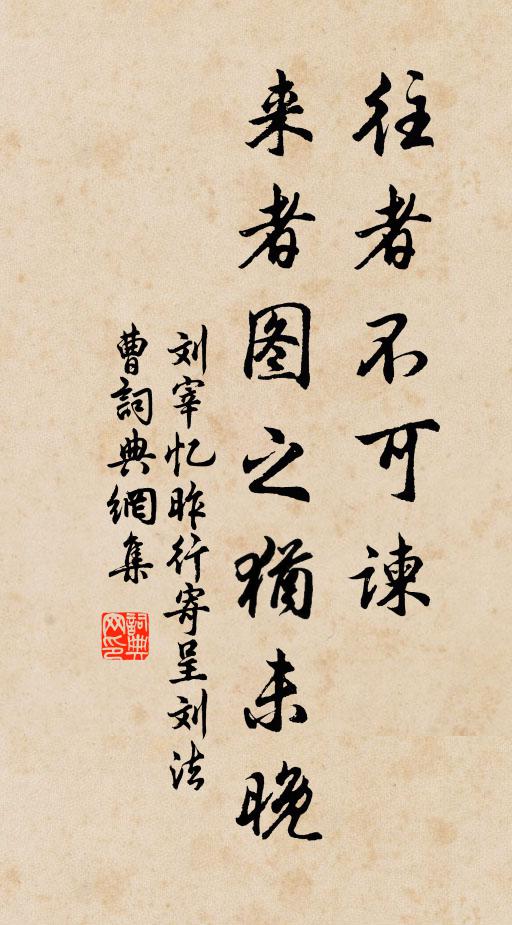 往者不可谏
来者图之犹未晚
刘宰忆昨行寄呈刘法
曹詞典網集
詞典网印